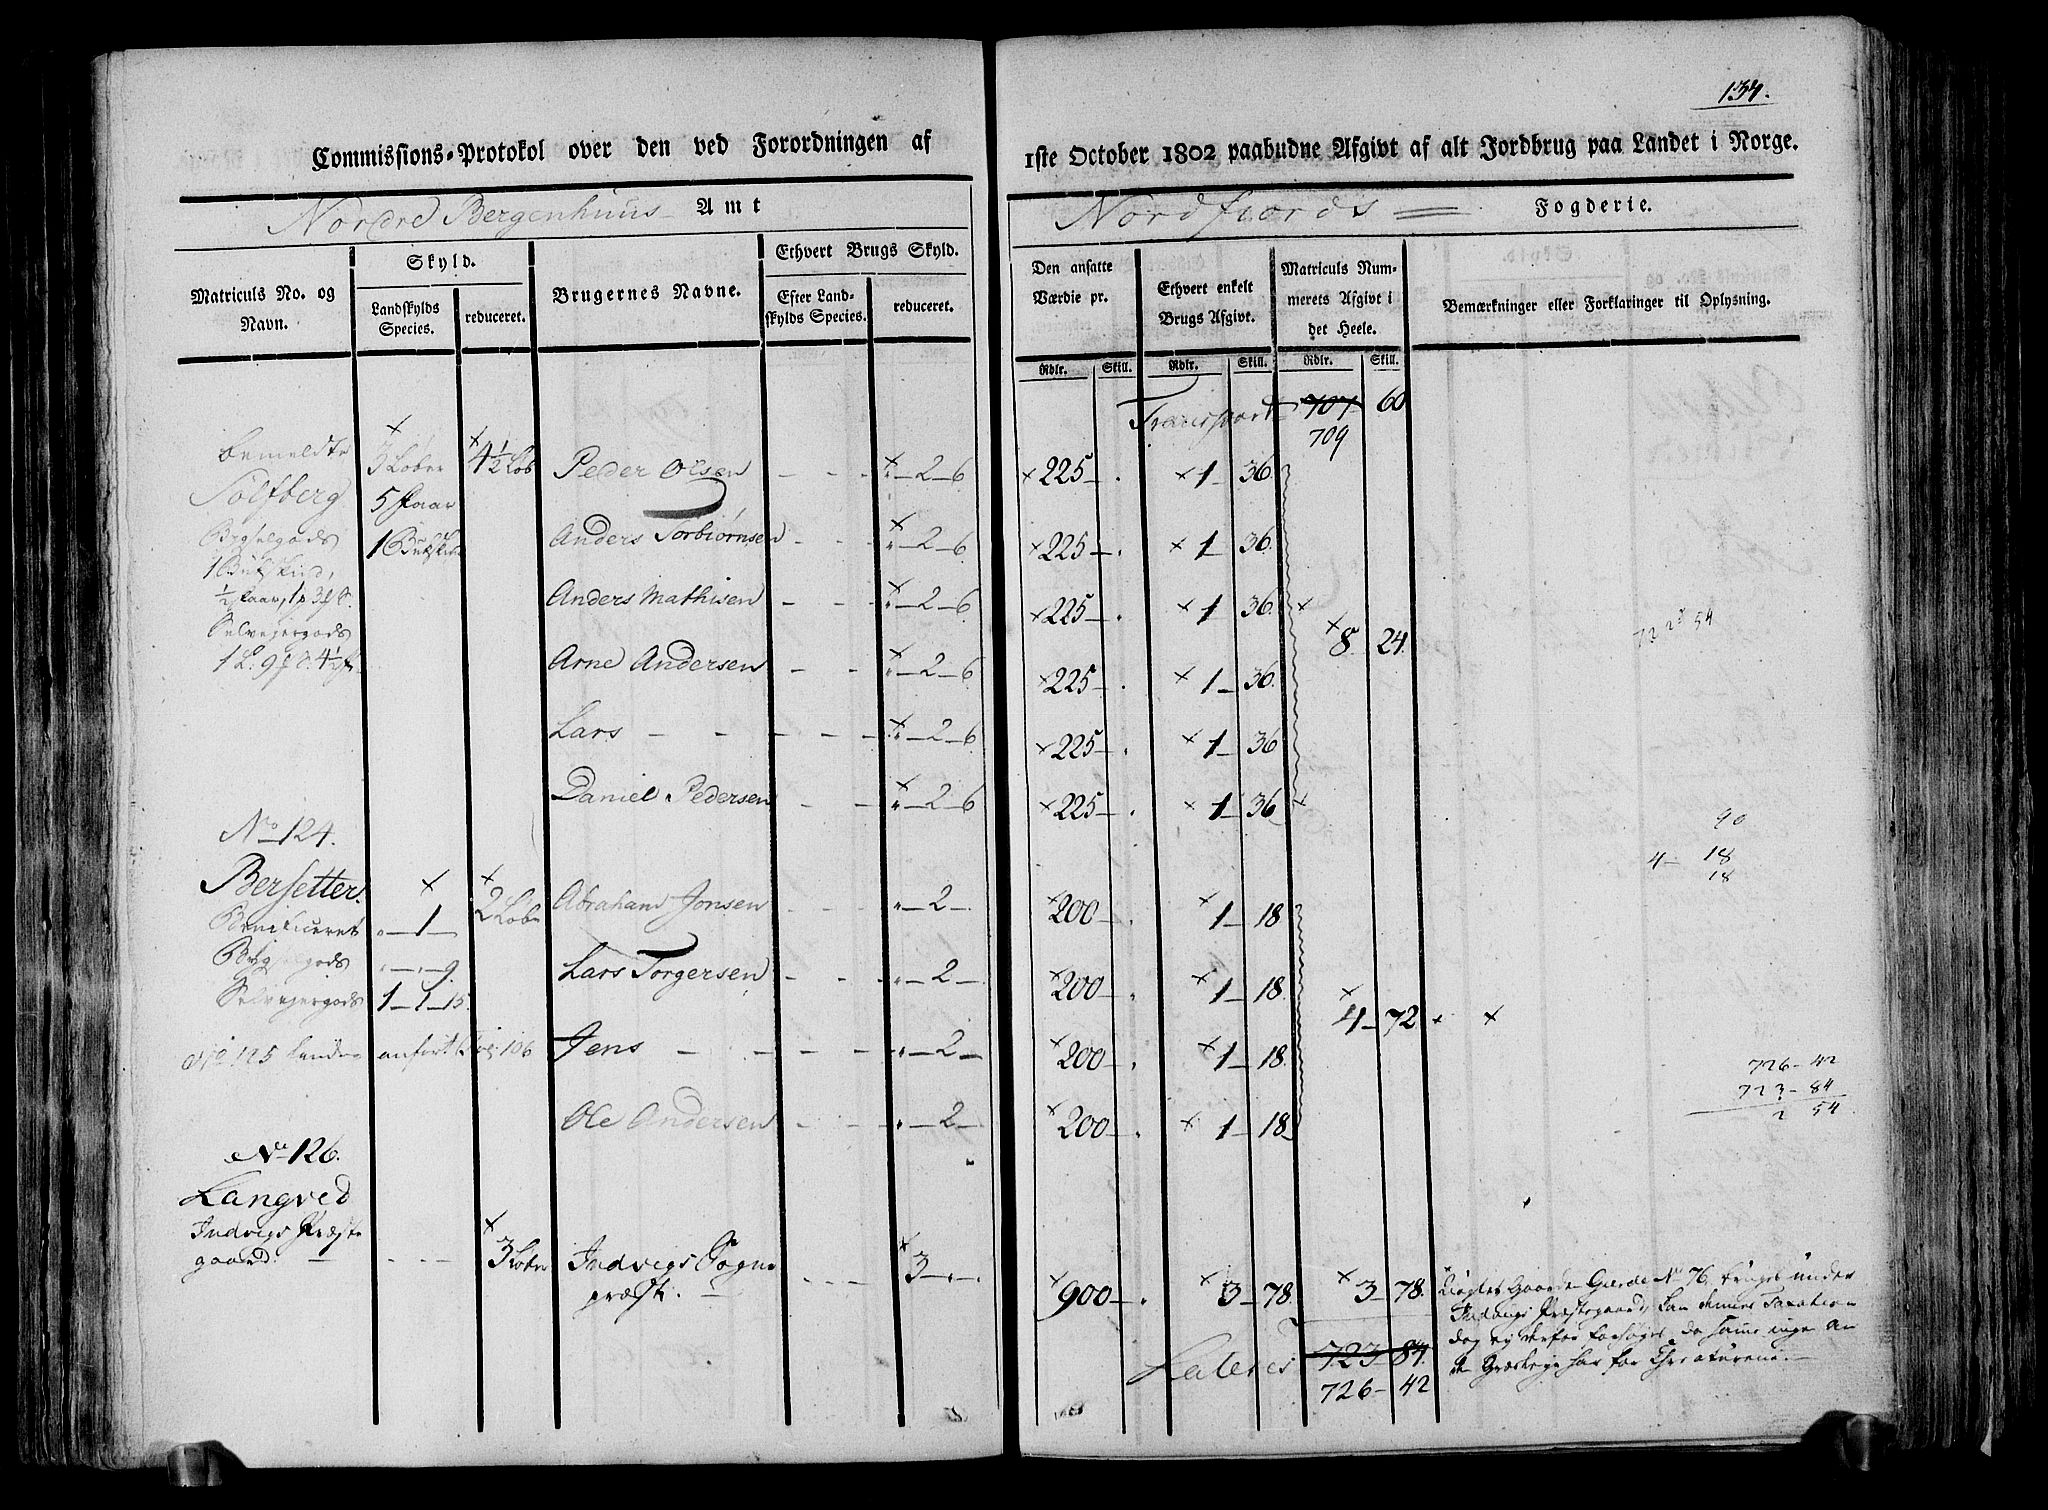 134.
Commissions-Protokol over den ved Forordningen af 1ste October 1802 paabudne Afgivt af alt Jordbrug paa Landet i Norge.
Nordre Bergenhuus Amt
Nordfiords Fogderie.
Matriculs No. og Navn.
Skyld.
Landskylds Species.
reduceret.
Brugernes Navne.
Ethvert Brugs Skyld.
Efter Landskylds Species.
reduceret.
Den ansatte Værdie pr.
Ethvert enkelt Brugs Afgivt.
Matriculs Nummerets Afgivt i det Heele.
Bemærkninger eller Forklaringer til Oplysning.
Rdlr. Skill. Rdlr. Skill. Rdlr. Skill.
Transport 707 60
709
bemeldte 3 Løber 4½ Løb Peder Olsen - - " - 2 - 6 225 - . 1 - 36.
Solfberg 5 Skaar
Bygselgods 1 Bukskind Anders Torbiørnsen - - " - 2 - 6 225 - . 1 - 36.
1 Bukskind,
Anders Mathisen - - " - 2 - 6 225 - . 1 36.
Selvejergods 8. 24.
Arne Andersen - - " - 2 - 6 225 - . 1 - 36.
72 23 54
Lars - - - - - " - 2 - 6 225 - . 1 - 36
Daniel Pedersen - - " - 2 - 6 225 - . 1 - 36
No 124.
90
4 - 18
18
Bersetter. 2 Løber Abraham Jonsen - - - " - 2 - 200 - 1 - 18
Beneficeret " - 1 -
Bygselgods " - " - 9. Lars Torgersen - - " - 2 - 200 - . 1 - 18.
Selvejergods 1 - 1 - 15. 4 - 72
No 125 anført Jens - - - - " - 2 - 200 - . 1 - 18.
726 - 42
723 - 84
2 54
Ole Andersen - - " - 2 - 200 - . 1 - 18
No 126.
Langved
Indvigs Præste
gaard. - - - - 3 Løber Indvigs Sogne - - - 3 - " - 900 - . 3 - 78. 3 - 78.
præst. -
Gaarden Gierde No 76, bruges under
Indvigs Præstegaard, kan denne Taxation
dog ey derfor
Lateres 723 84.
726 - 42